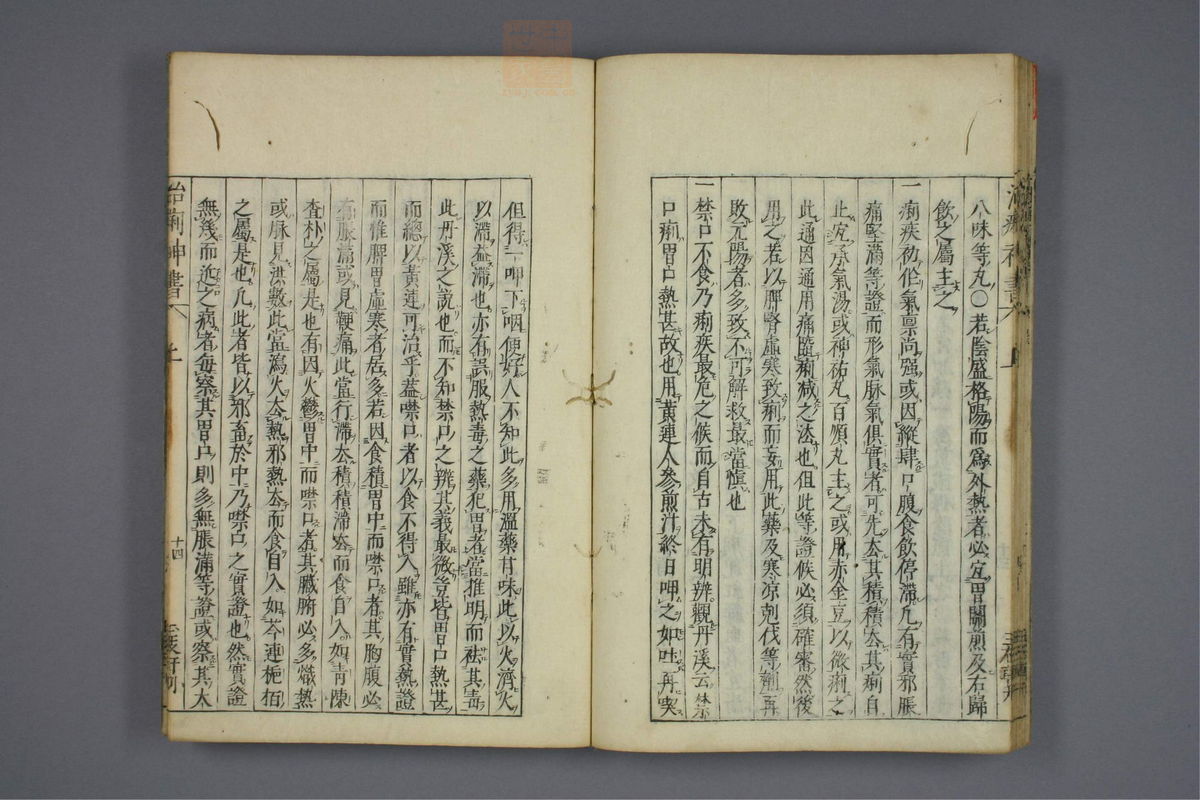 八味等丸○若陰盛格陽而爲外熱者必宜胃關煎及右歸
飲之屬主之
一痢疾初作氣禀尚强或因縱肆口腹食飲停滯凡有實邪脹
痛堅滿等證而形氣脉氣俱實者可先去其積積去其痢自
止宜承氣湯或神祐丸百順丸主之或用赤金豆以微痢之
此通因通用痛隨痢減之法也但此等證候必須確審然後
用之若以脾腎虛寒致痢而妄用此藥及寒凉剋伐等劑再
敗元陽者多致不可解救最當愼也
一禁口不食乃痢疾最危之候而自古未有明辨觀丹溪云禁
口痢胃口熱甚故也用黃連人參煎汁終日呷之如吐再喫
但得一呷下咽便好人不知此多用溫藥甘味此以火濟火
以滯益滯也亦有誤服熱毒之藥犯胃者當推明而祛其毒
此丹溪之說也而不知禁口之辨其義最微豈皆胃口熱甚
而總以黃連可治乎蓋噤口者以食不得入雖亦有實熱證
而惟脾胃虛寒者居多若因食積胃中而噤口者其胸腹必
有脹滿或見鞕痛此當行滯去積積滯去而食自入如靑陳
査朴之屬是也有因火鬱胃中而噤口者其臟腑必多熾熱
或脉見洪數此當瀉火去熱邪熱去而食自入如芩連梔栢
之屬是也凡此者皆以邪畜於中乃噤口之實證也然實證
無幾而近之病者每察其胃口則多無脹滿等證或察其大
治痢神書 上 十四